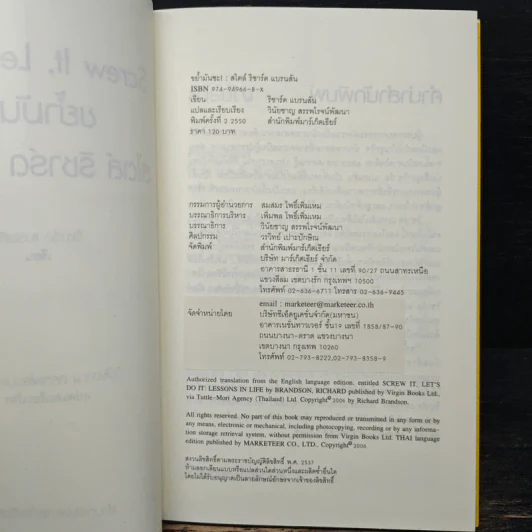 ขย้ำมันซะ! : สไตล์ ริชาร์ด แบรนสัน
ISBN 974-94966-8-X
เขียน ริชาร์ด แบรนสัน
แปลและเรียบเรียง วินัยชาญ สรรพโรจน์พัฒนา
พิมพ์ครั้งที่ 2 2550 สำนักพิมพ์มาร์เก็ตเธียร์
ราคา 120 บาท
กรรมการผู้อำนวยการ สมสมร โพธิ์เพิ่มเหม
บรรณาธิการบริหาร เพิ่มพล โพธิ์เพิ่มเหม
บรรณาธิการ วินัยชาญ สรรพโรจน์พัฒนา
ศิลปกรรม วรวิทย์ เปาะบักษิณ
จัดพิมพ์ สำนักพิมพ์มาร์เก็ตเธียร์
บริษัท มาร์เก็ตเธียร์ จำกัด
อาคารสาธรธานี 1 ชั้น 11 เลขที่ 90/27 ถนนสาทรเหนือ
แขวงสีลม เขตบางรัก กรุงเทพฯ 10500
โทรศัพท์ 02-636-6711 โทรสาร 02-636-9445
email : marketeer@marketeer.co.th
จัดจำหน่ายโดย บริษัทซีเอ็ดยูเคชั่นจำกัด(มหาชน)
อาคารเนชั่นทาวเวอร์ ชั้น19 เลขที่ 1858/87-90
ถนนบางนา-ตราด แขวงบางนา
เขตบางนา กรุงเทพ 10260
โทรศัพท์ 02-793-8222,02-793-8358-9
Authorized translation from the English language edition, entitled SCREW IT, LET'S
DO IT: LESSONS IN LIFE by BRANDSON, RICHARD published by Virgin Books Ltd.,
via Tuttle-Mori Agency (Thailand) Ltd. Copyright© 2006 by Richard Brandson.
All rights reserved. No part of this book may reproduced or transmitted in any form or by
any means, electronic or mechanical, including photocopying, recording or by any informa-
tion storage retrieval system, without permission from Virgin Books Ltd. THAI language
edition published by MARKETEER CO., LTD., Copyright© 2006
สงวนลิขสิทธิ์ตามพระราชบัญญัติลิขสิทธิ์ พ.ศ. 2537
ห้ามลอกเลียนแบบหรือแปลส่วนใดส่วนหนึ่งและผลิตซ้ำอื่นใด
โดยไม่ได้รับอนุญาตเป็นลายลักษณ์อักษรจากเจ้าของลิขสิทธิ์